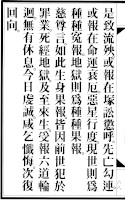 是致流殃或報在塚訟愆呼先亡勾連
或報在命運衰厄惡星行度現世則爲
種種冤報地獄則爲種種果報
慈尊言如此生身果報皆因前世犯於
罪業死經地獄及至來生爲報六道輪
迴無有休息今日虔誠咸乞懺悔次復
回向